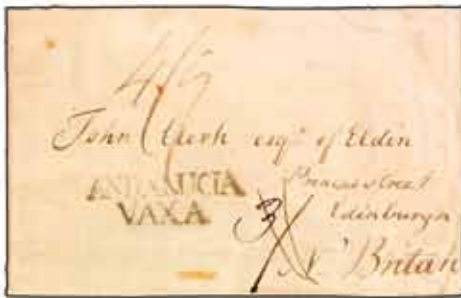 4/6
John Clerk esqr. of Eldin
ANDALUCIA
VAXA
Princes street
Edinburgh
3
Nº Britan